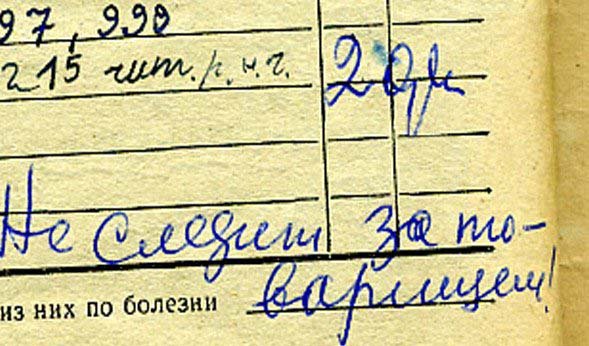 97, 990
215 чит.
2
Не следит за то-
из них по болезни
варищем!